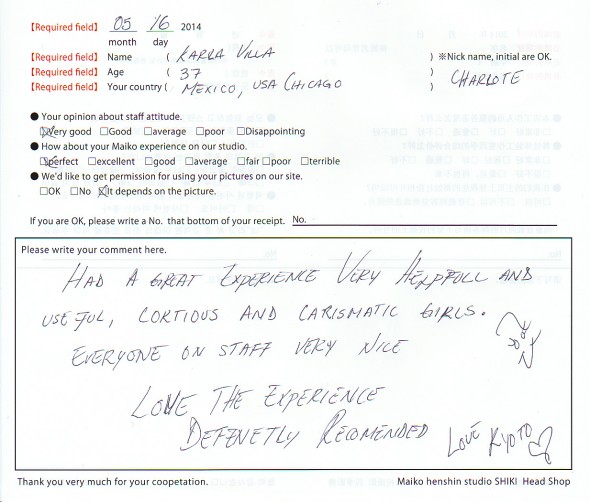 【Required field】 05 16 2014
month day
【Required field】 Name ( KARLA VILLA ) ※Nick name, initial are OK.
【Required field】 Age ( 37 ) CHARLOTE
【Required field】 Your country ( MEXICO, USA CHICAGO )
● Your opinion about staff attitude.
☒Very good □Good □average □poor □Disappointing
● How about your Maiko experience on our studio.
☒perfect □excellent □good □average □fair □poor □terrible
● We'd like to get permission for using your pictures on our site.
□OK □No ☒It depends on the picture.
If you are OK, please write a No. that bottom of your receipt. No.
Please write your comment here.
HAD A GREAT EXPERIENCE VERY HELPFULL AND
USEFUL, CORTIOUS AND CARISMATIC GIRLS.
EVERYONE ON STAFF VERY NICE
LOVE THE EXPERIENCE
DEFENETLY RECOMENDED LOVE KYOTO
Thank you very much for your coopetation. Maiko henshin studio SHIKI Head Shop